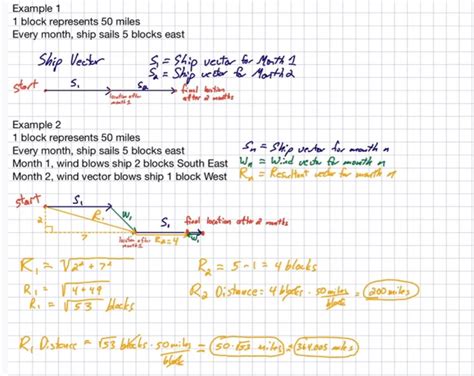 Example 1
1 block represents 50 miles
Every month, ship sails 5 blocks east
Ship Vector
S₁ = Ship vector for Month 1
S₂ = Ship vector for Month 2
start
S₁
S₂
location after month 1
final location after 2 months
Example 2
1 block represents 50 miles
Every month, ship sails 5 blocks east
Month 1, wind blows ship 2 blocks South East
Month 2, wind vector blows ship 1 block West
Sₙ = Ship vector for month n
Wₙ = Wind vector for month n
Rₙ = Resultant vector for month n
start
S₁
R₁
W₁
2
7
S₁
final location after 2 months
location after month 1
R₂ = 4
W₁
R₁ = √2² + 7²
R₁ = √4 + 49
R₁ = √53 blocks
R₂ = 5 - 1 = 4 blocks
R₂ Distance: 4 blocks · 50 miles/block = 200 miles
R₁ Distance = √53 blocks · 50 miles/block = 50·√53 miles ≈ 364.005 miles